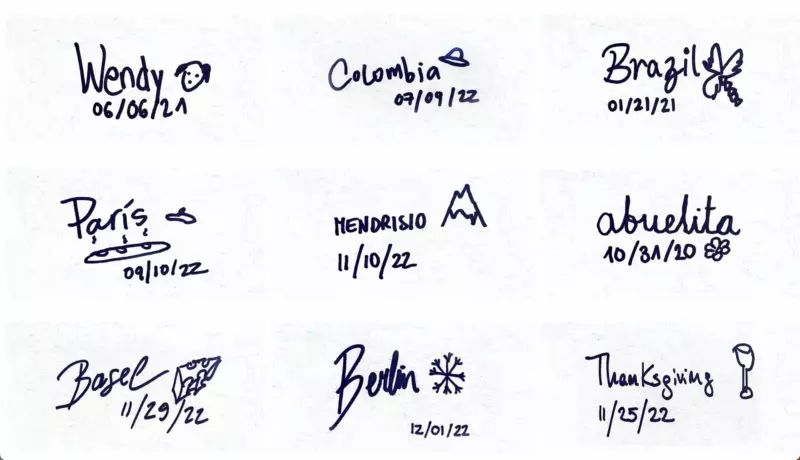 Wendy
06/06/21
Colombia
07/09/22
Brazil
01/21/21
París
09/10/22
MENDRISIO
11/10/22
abuelita
10/31/20
Basel
11/29/22
Berlin
12/01/22
Thanksgiving
11/25/22